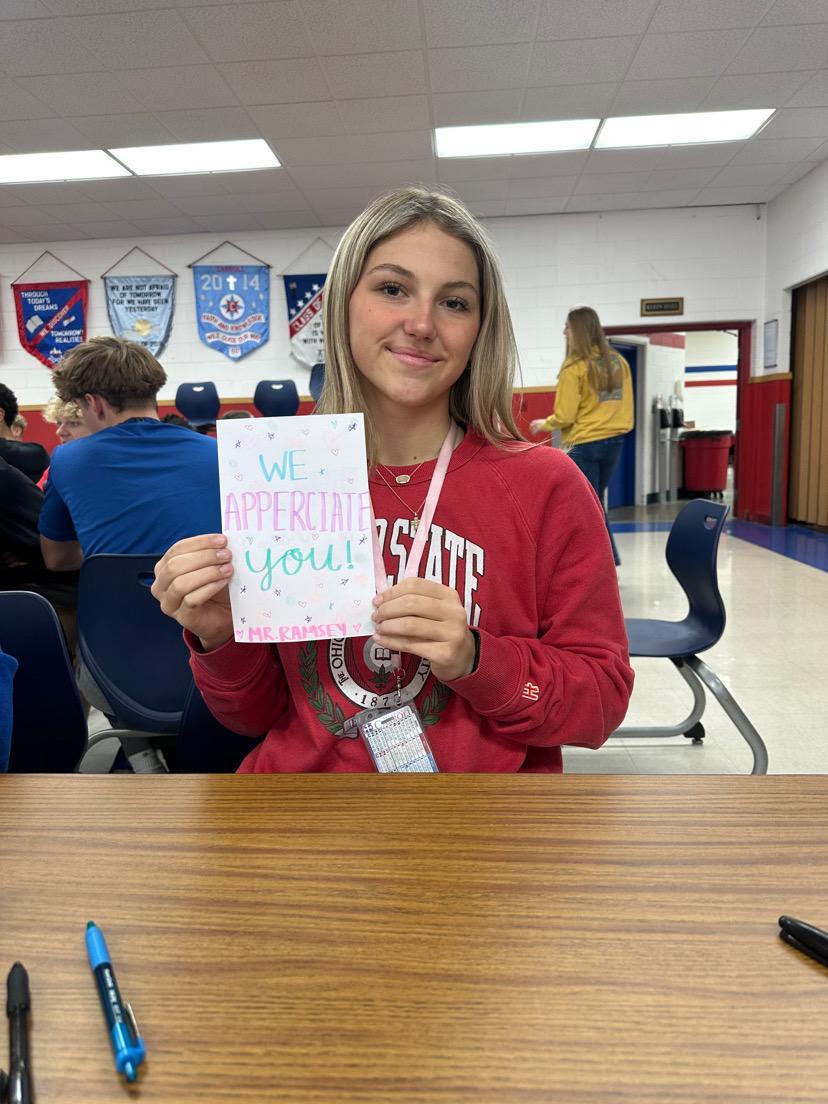 THROUGH
TODAY'S
DREAMS
WE DISCOVER
TOMORROW'S
REALITIES
WE ARE NOT AFRAID
OF TOMORROW
FOR WE HAVE SEEN
YESTERDAY
CARROLL
2014
FAITH AND KNOWLEDGE
CLASS
KLEIN HALL
WE
APPERCIATE
you!
MR. RAMSEY
STATE
THE OHIO
187